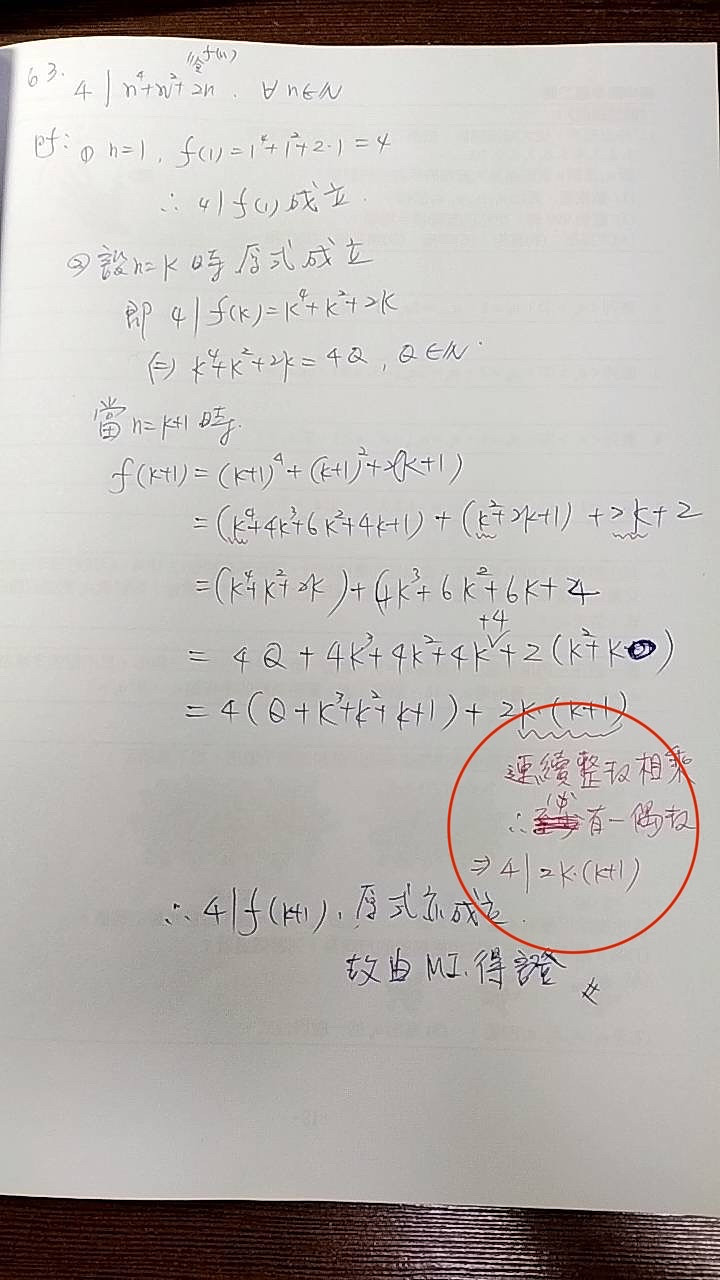 63. 4 | n⁴+n²+2n . ∀n∈N
令f(n)
pf: ① n=1, f(1)=1⁴+1²+2·1=4
∴ 4|f(1) 成立.
② 設n=k 時 原式成立
即 4|f(k)=k⁴+k²+2k
⇔ k⁴+k²+2k=4Q, Q∈N.
當n=k+1時.
f(k+1)=(k+1)⁴+(k+1)²+2(k+1)
=(k⁴+4k³+6k²+4k+1)+(k²+2k+1)+2k+2
=(k⁴+k²+2k)+(4k³+6k²+6k+4
= 4Q+4k³+4k²+4k+4+2(k²+k)
= 4(Q+k³+k²+k+1)+2k·(k+1)
連續整数相乘
∴必有一偶数
⇒ 4|2k·(k+1)
∴ 4|f(k+1), 原式亦成立.
故由 M.I. 得證